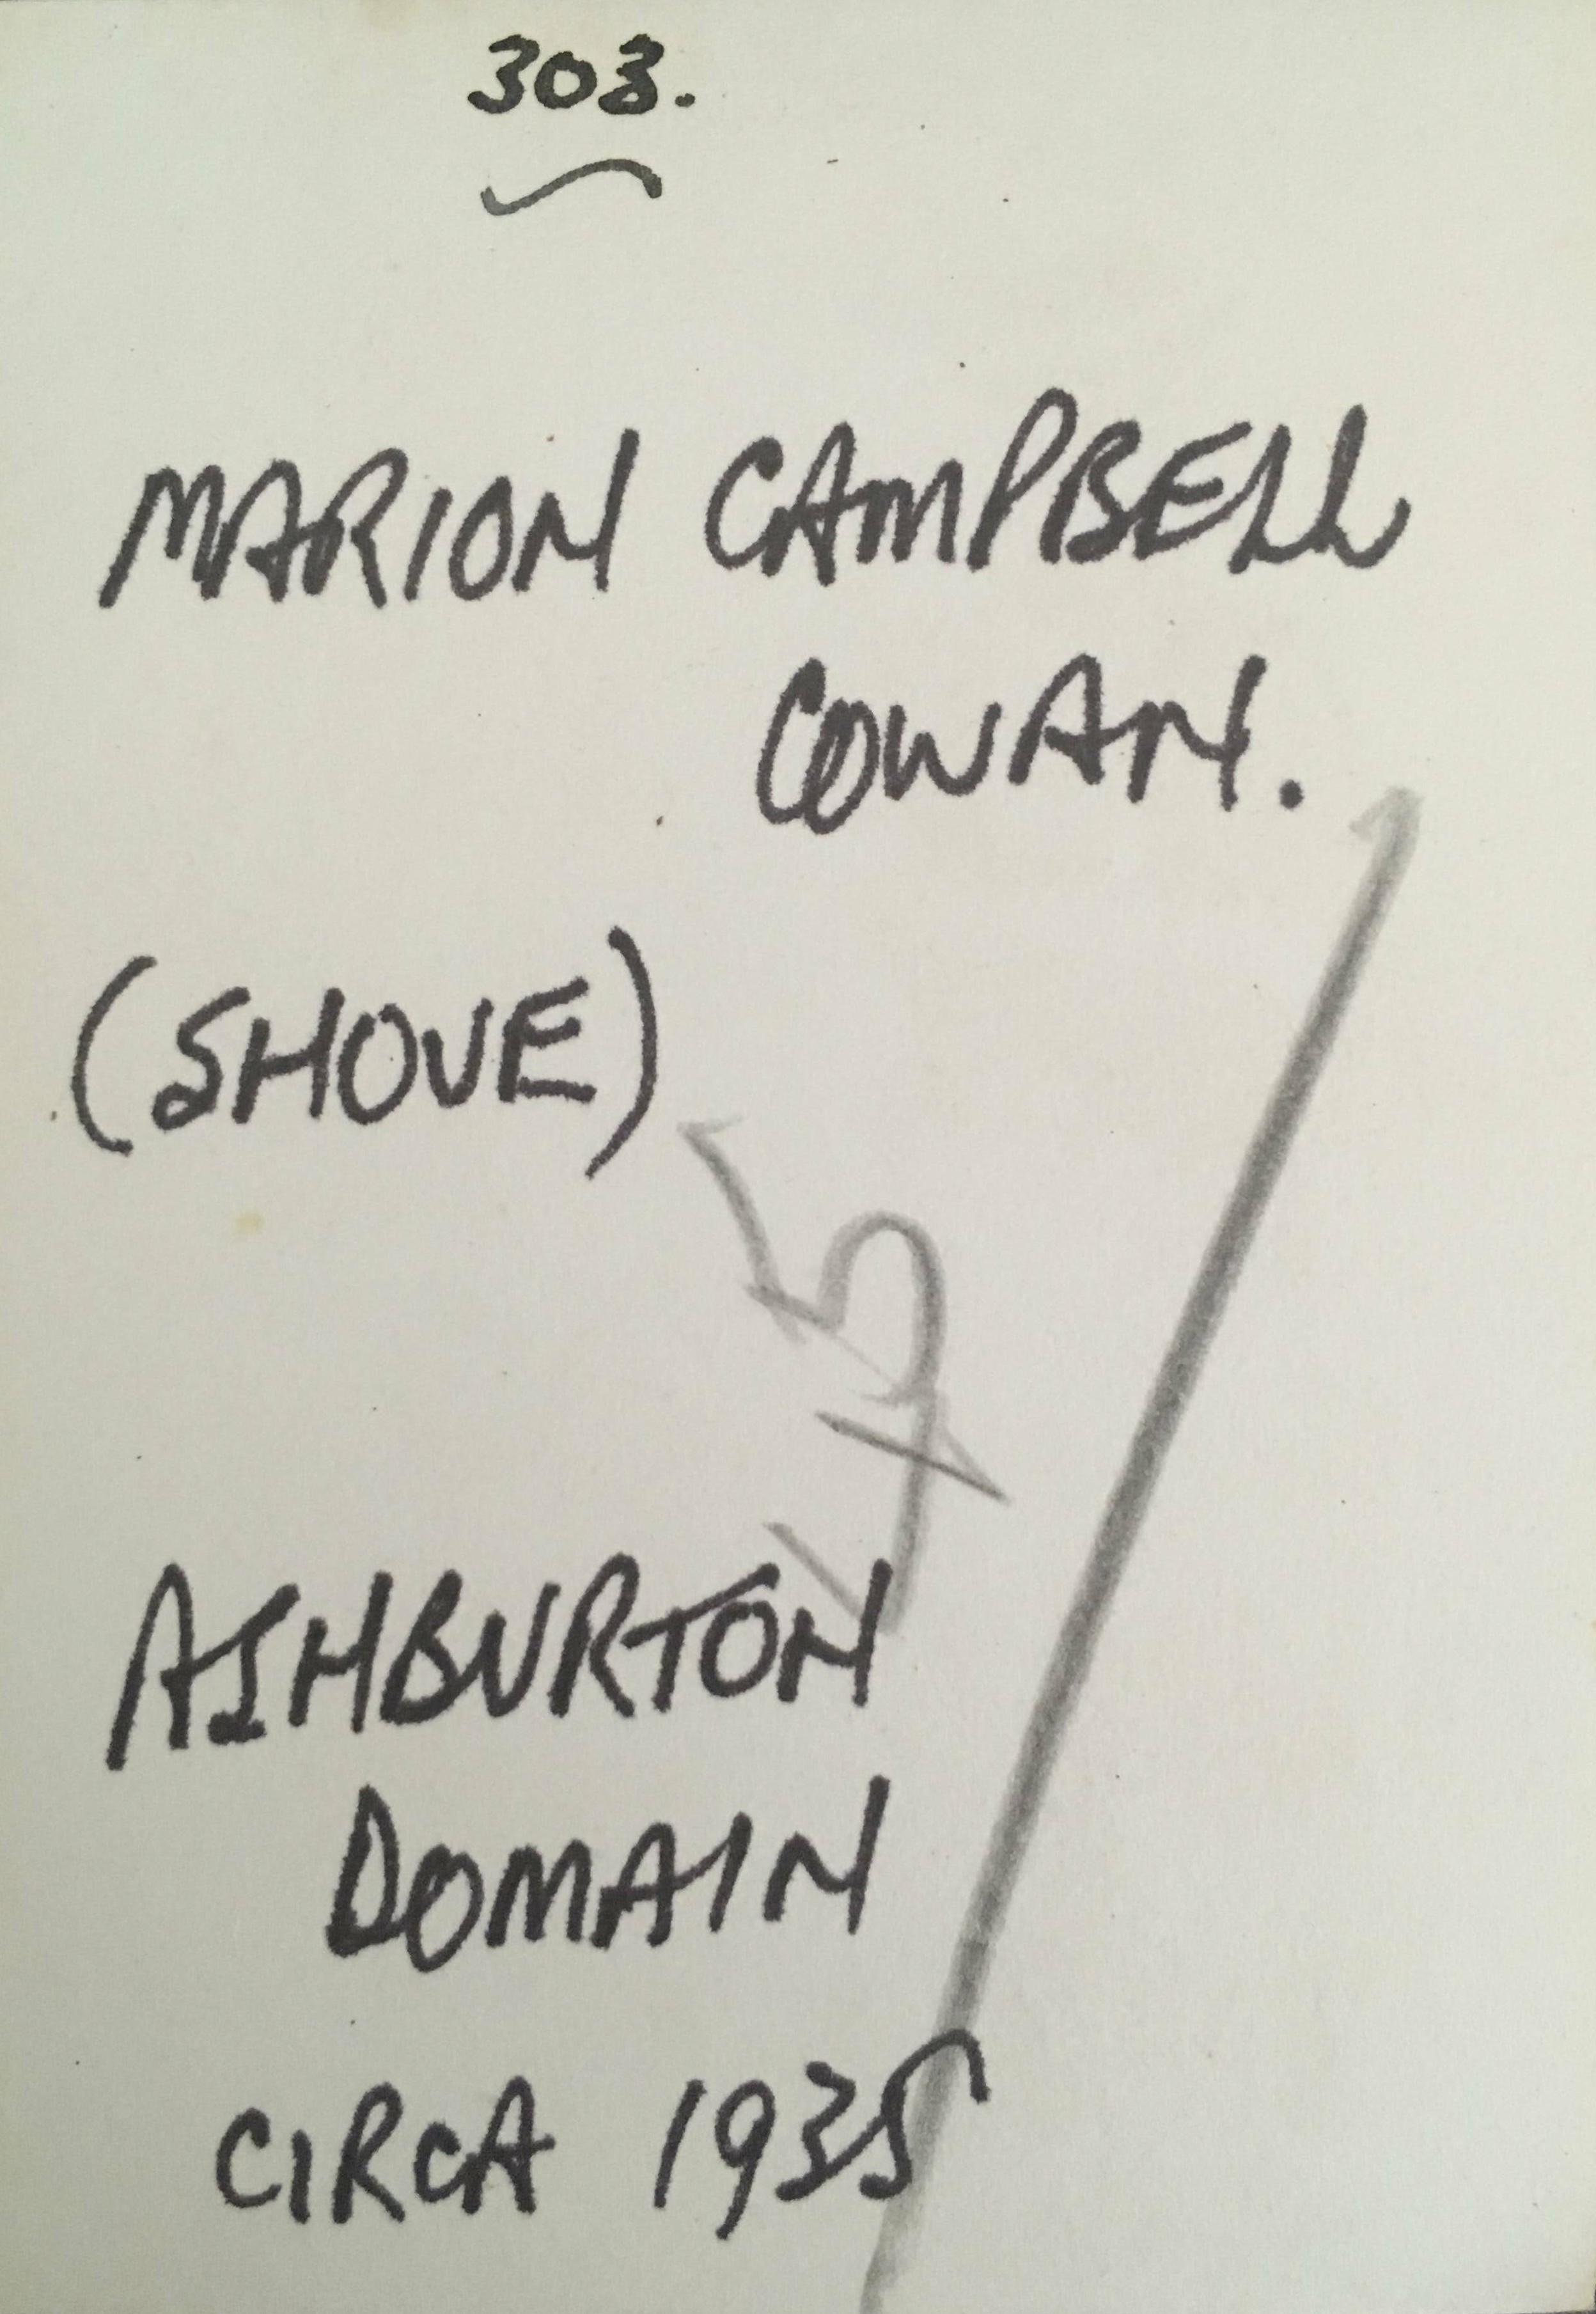 303.
MARION CAMPBELL
COWAN.
(SHOVE)
ASHBURTON
DOMAIN
CIRCA 1935